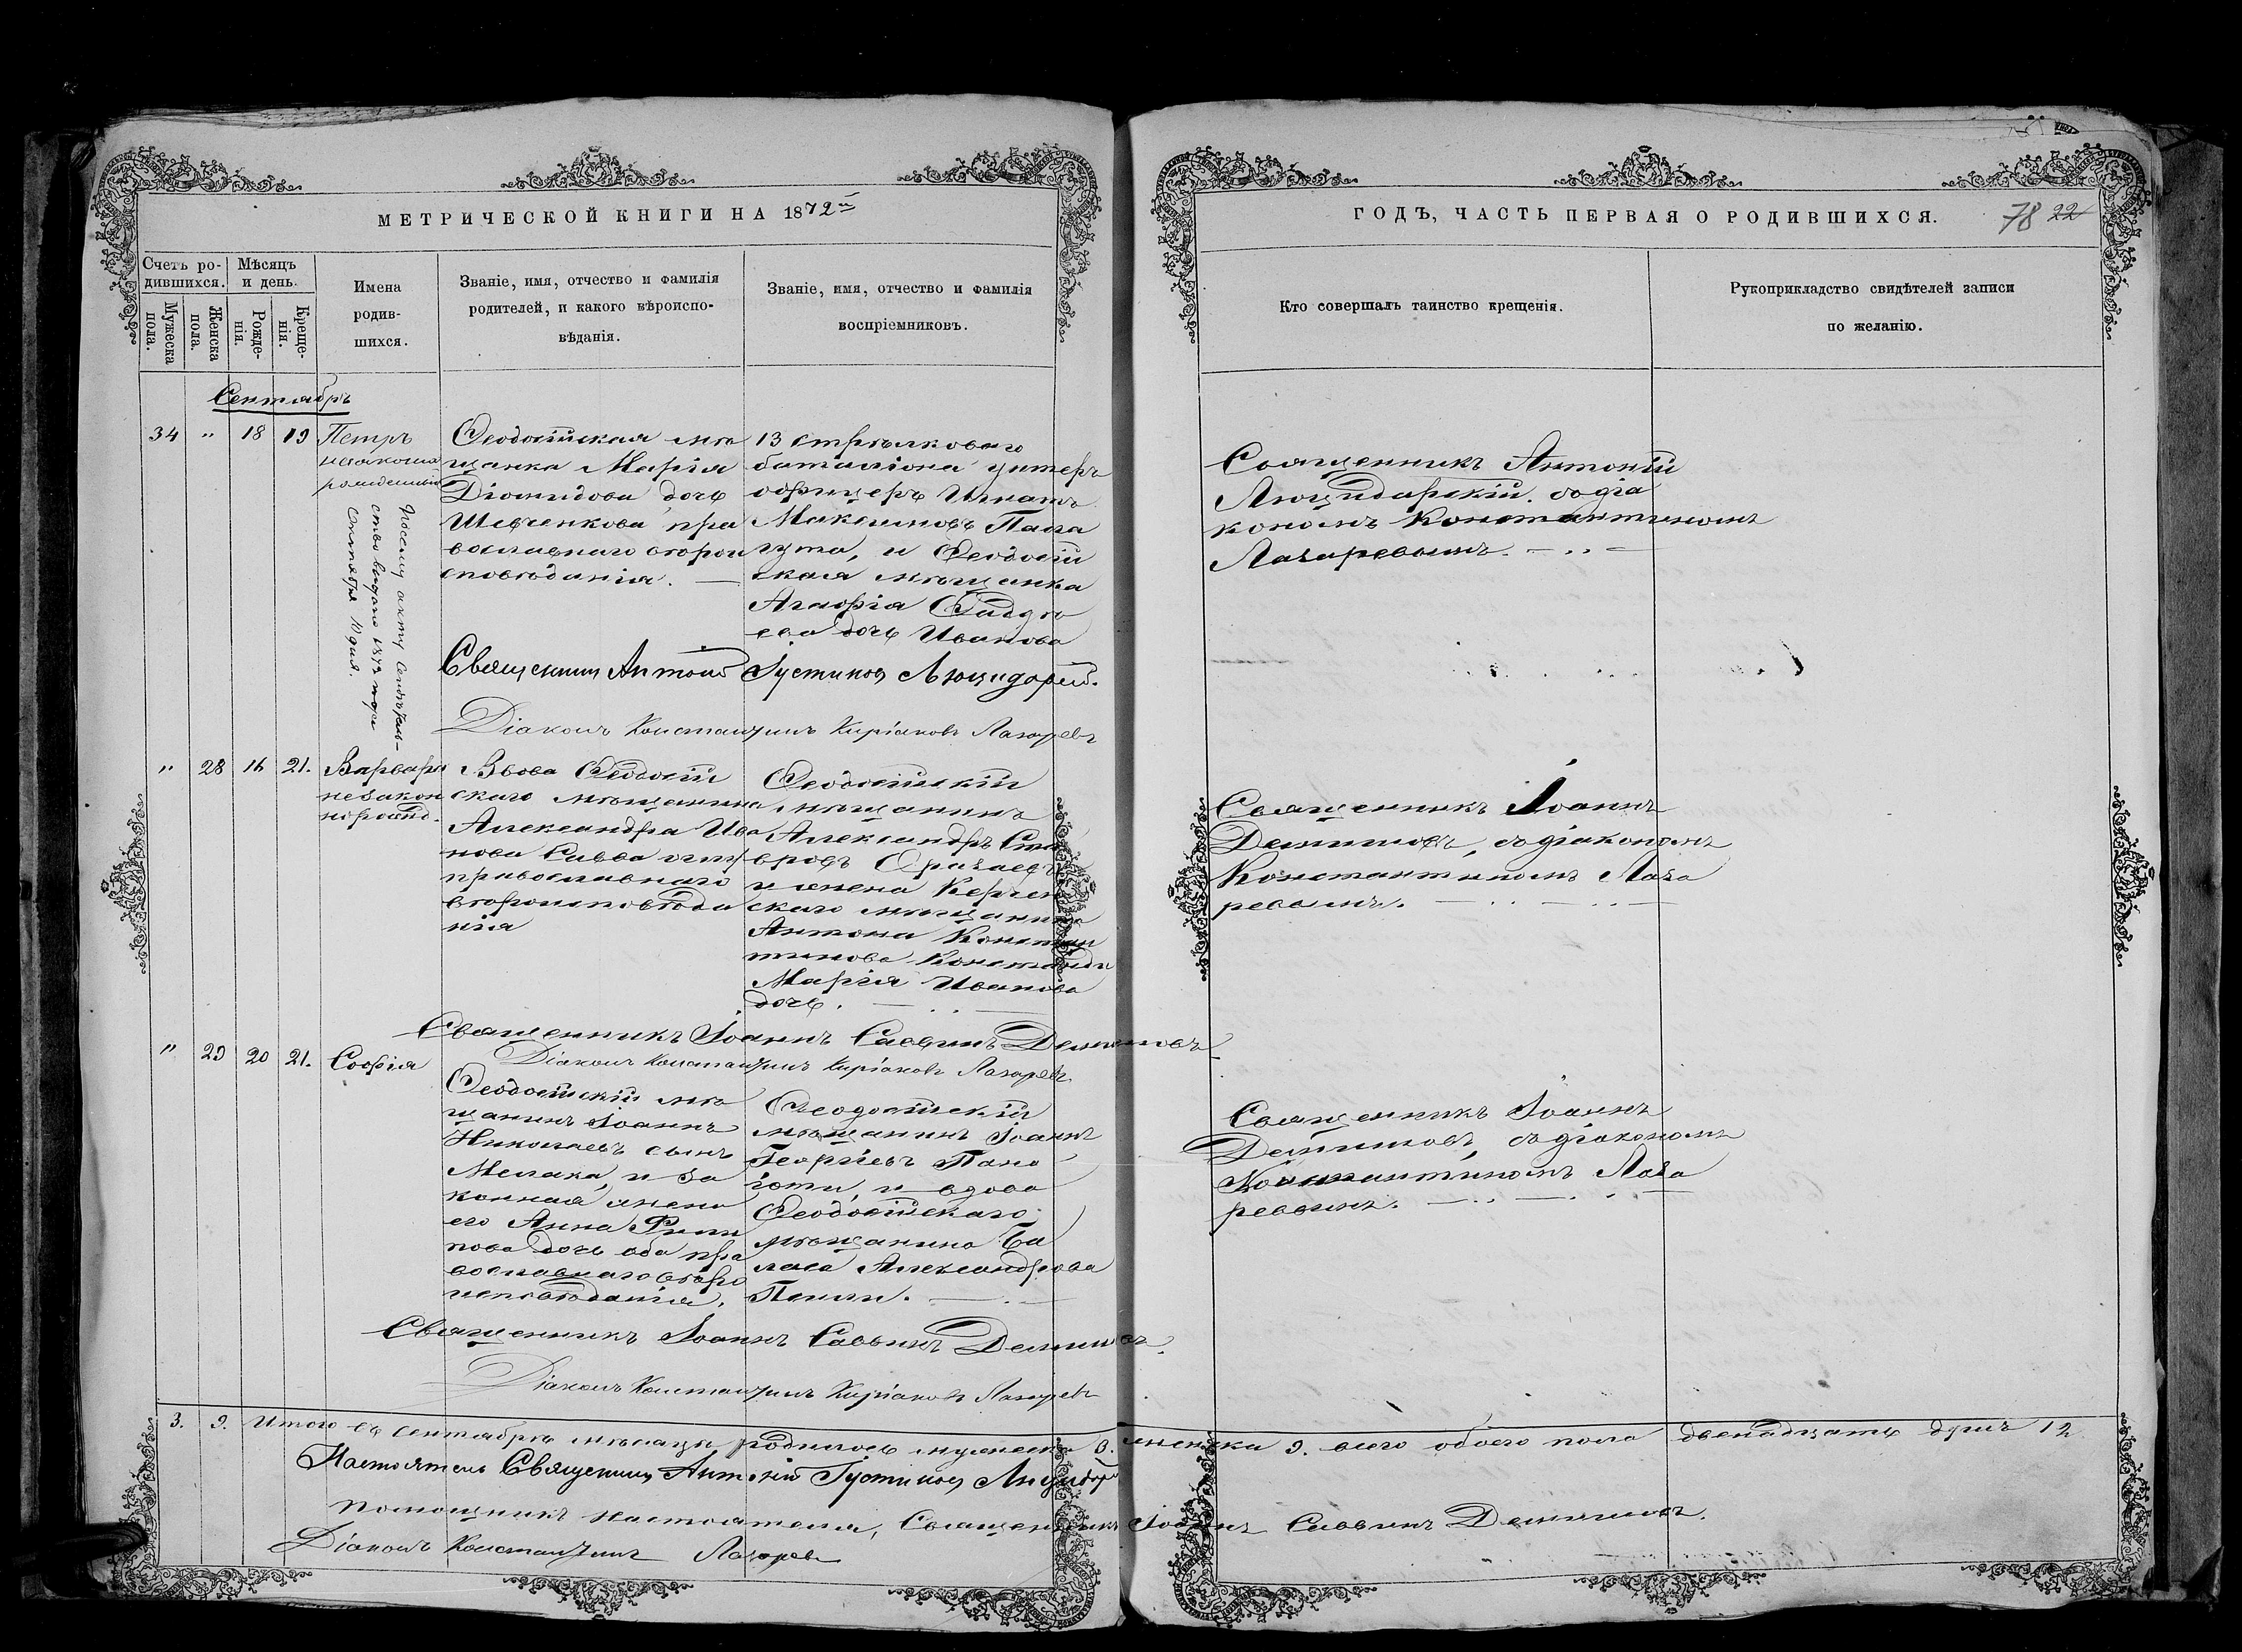 МЕТРИЧЕСКОЙ КНИГИ НА 1872й
ГОДЪ, ЧАСТЬ ПЕРВАЯ О РОДИВШИХСЯ.
78 22
Счетъ ро-
дившихся.
Мужеска
пола.
Женска
пола.
Мѣсяцъ
и день.
Рожде-
нія.
Креще-
нія.
Имена
родив-
шихся.
Званіе, имя, отчество и фамилія
родителей, и какого вѣроиспо-
вѣданія.
Званіе, имя, отчество и фамилія
воспріемниковъ.
Кто совершалъ таинство крещенія.
Рукоприкладство свидѣтелей записи
по желанію.
Сентябрь
34 " 18 19
Петръ
незаконно
рожденный
По сему акту свидѣтель-
ство выдано 1873 года
Сентября 10 дня.
Ѳеодосійская мѣ
щанка Марія
Діомидова дочь
Шевченкова пра
вославнаго вѣрои
сповѣданія.
13 стрѣлковаго
баталіона унтеръ
офицеръ Игнатъ
Максимовъ Пала
гута, и Ѳеодосій
ская мѣщанка
Агафія Ѳаддѣ
ева дочь Иванова
Священникъ Антоній
Люцидарскій. съ діа
кономъ Константиномъ
Лазаревымъ.
Священникъ Антоній Іустиновъ Люцидарскій.
Діаконъ Константинъ Киріаковъ Лазаревъ
" 28 16 21.
Варвара
незакон
норожд.
Вдова Ѳеодосій
скаго мѣщанина
Александра Ива
нова Савва
православнаго
вѣроисповѣда
нія
Ѳеодосійскій
мѣщанинъ
Александръ Ста
вровъ
и жена Керчен
скаго мѣщанина
Антона Констан
тинова Констанди
Марія Иванова
дочь.
Священникъ Іоаннъ
Демишовъ, съ діакономъ
Константиномъ Лаза
ревымъ.
Священникъ Іоаннъ Саввинъ Демишовъ
Діаконъ Константинъ Киріаковъ Лазаревъ.
" 29 20 21.
Софія
Ѳеодосійскій мѣ
щанинъ Іоаннъ
Николаевъ сынъ
Мелака, и за
конная жена
его Анна Филип
пова дочь оба пра
вославнаго вѣро
исповѣданія.
Ѳеодосійскій
мѣщанинъ Іоаннъ
Георгіевъ Пана
іоти, и вдова
Ѳеодосійскаго
мѣщанина
Александрова
Священникъ Іоаннъ
Демишовъ, съ діакономъ
Константиномъ Лаза
ревымъ.
Священникъ Іоаннъ Саввинъ Демишовъ.
Діаконъ Константинъ Киріаковъ Лазаревъ
3. 9. Итого въ Сентябрѣ мѣсяцѣ родилось мужеска 3. женска 9. всего обоего пола двенадцать душъ 12
Настоятель Священникъ Антоній Іустиновъ Люцидарскій
Помощникъ настоятеля, Священникъ Іоаннъ Саввинъ Демишовъ.
Діаконъ Константинъ Лазаревъ